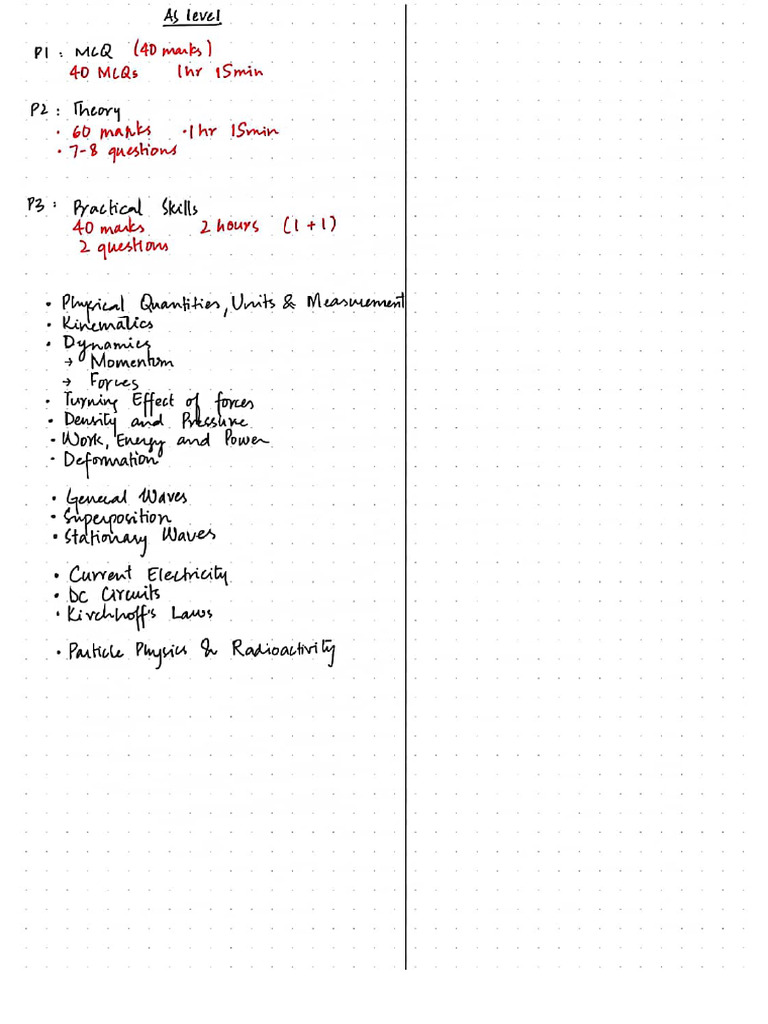 As level
P1 : MCQ (40 marks)
40 MCQs 1hr 15min
P2 : Theory
• 60 marks • 1hr 15min
• 7-8 questions
P3 : Practical Skills
40 marks 2 hours (1 + 1)
2 questions
• Physical Quantities, Units & Measurement
• Kinematics
• Dynamics
→ Momentum
→ Forces
• Turning Effect of forces
• Density and Pressure
• Work, Energy and Power
• Deformation
• General Waves
• Superposition
• Stationary Waves
• Current Electricity
• DC Circuits
• Kirchhoff's Laws
• Particle Physics & Radioactivity